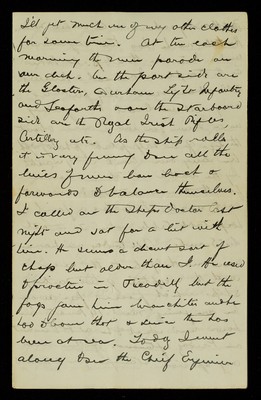 I'd get much use of my other clothes
for some time. At ten each
morning the men parade on
our deck. On the port side are
the Glosters, Durham Light Infantry
and Seaforths & on the starboard
side are the Royal Irish Rifles,
Artillery etc. As the ship rolls
it is very funny to see all the
lines of men bow back &
forwards to balance themselves.
I called on the Ship's doctor last
night and sat for a bit with
him. He seems a decent sort of
chap but older than I. He used
to practice in Piccadilly but the
fogs gave him bronchitis and he
had to leave that & since then has
been at sea. Today I went
along to see the Chief Engineer